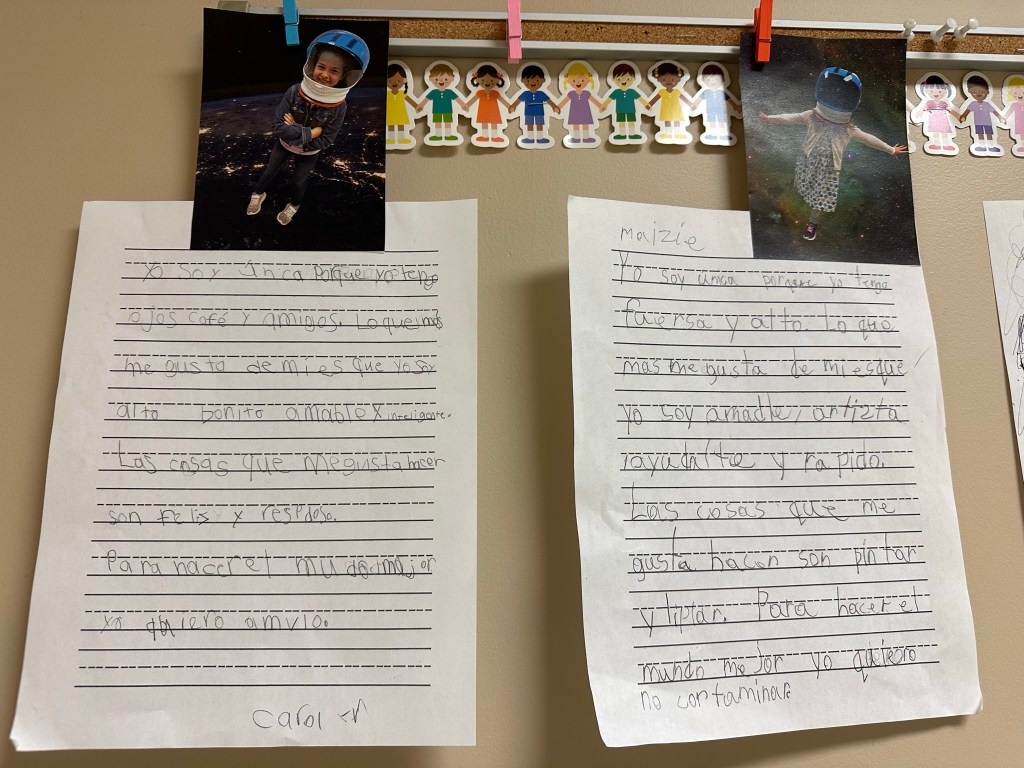 Yo soy única porque yo tengo
ojos café y amigos. Lo que más
me gusta de mi es que yo soy
alto bonito amable y inteligente.
Las cosas que me gusta hacer
son felis y
Para hacer el mundo major
yo quiero
Carol
maizie
Yo soy única porque yo tengo
fuersa y alto. Lo que
mas me gusta de mi es que
yo soy amable, artizta
y rapido.
Las cosas que me
gusta hacer son pintar
y Para hacer el
mundo mejor yo quiero
no contaminar